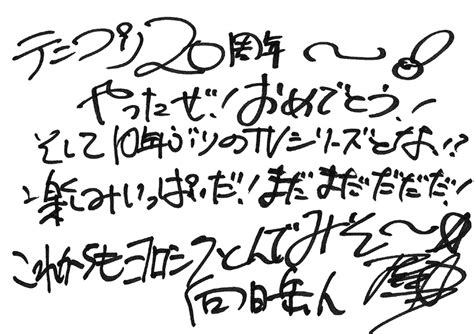 テニプリ20周年〜!
やったぜ!おめでとう!
そして10年ぶりのTVシリーズとな!?
楽しみいっぱいだ!まだまだだだだ!
これからもヨロシクとんでみそ〜
向日岳人